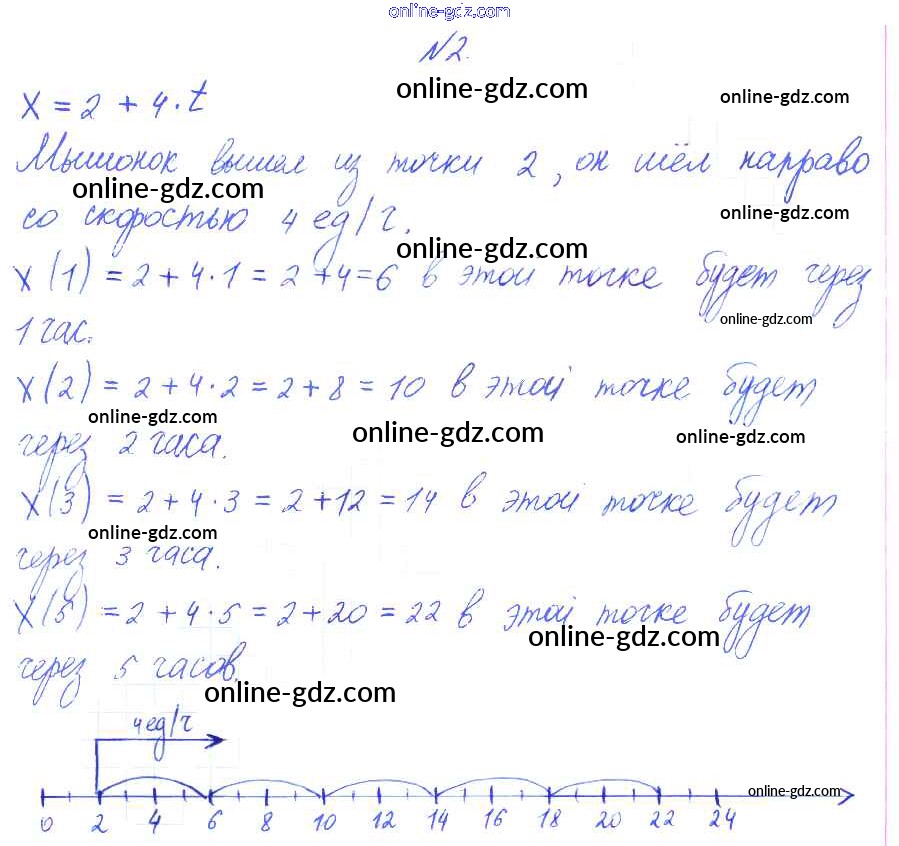 online-gdz.com
N2.
online-gdz.com
online-gdz.com
x = 2 + 4·t
Мышонок вышел из точки 2, он шёл направо
online-gdz.com
online-gdz.com
со скоростью 4 ед/ч.
online-gdz.com
x(1) = 2 + 4·1 = 2 + 4 = 6 в этой точке будет через
online-gdz.com
1 час.
x(2) = 2 + 4·2 = 2 + 8 = 10 в этой точке будет
online-gdz.com
online-gdz.com
online-gdz.com
через 2 часа.
x(3) = 2 + 4·3 = 2 + 12 = 14 в этой точке будет
online-gdz.com
через 3 часа.
x(5) = 2 + 4·5 = 2 + 20 = 22 в этой точке будет
online-gdz.com
через 5 часов.
online-gdz.com
4 ед/ч
online-gdz.com
0 2 4 6 8 10 12 14 16 18 20 22 24